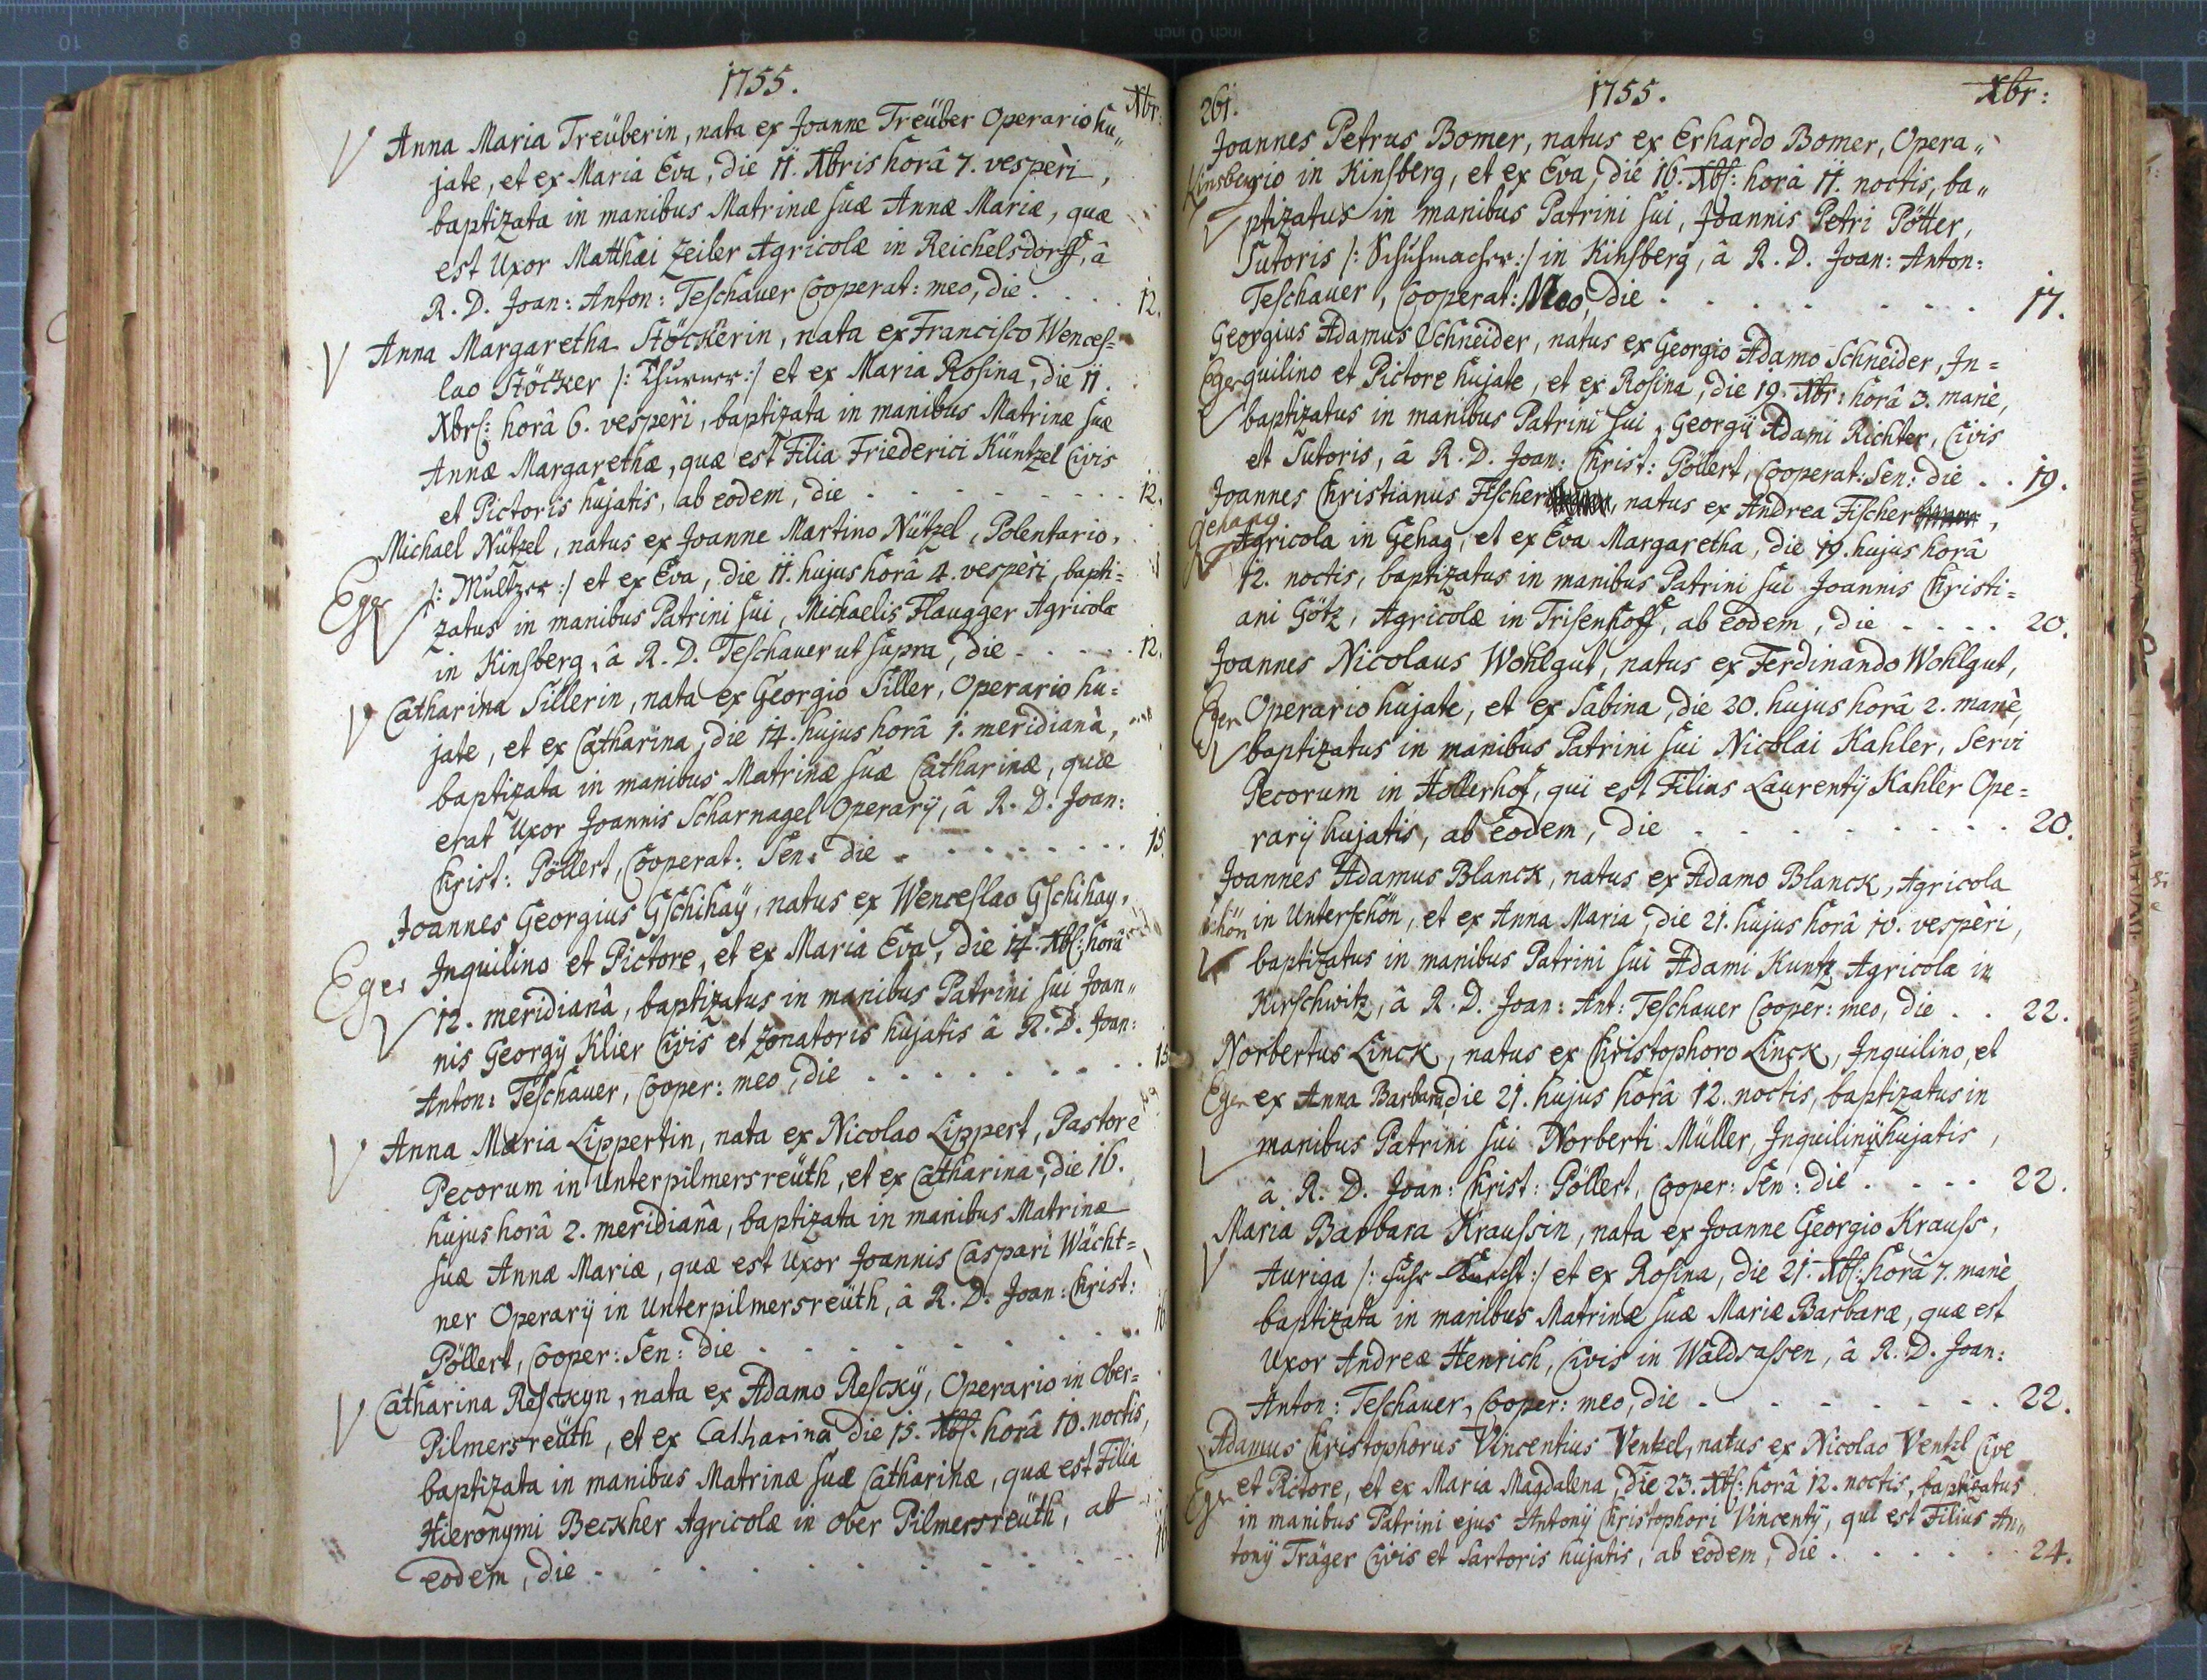 1755.
Xbr:
Anna Maria Treüberin, nata ex Joanne Treüber Operario hu„
jate, et ex Maria Eva, die 11. Xbris horâ 7. vesperì,
baptizata in manibus Matrinæ suæ Annæ Mariæ, quæ
est Uxor Matthæi Zeiler Agricolæ in Reichelsdorff, â
R. D. Joan: Anton: Teschauer Cooperat: meo, die . . . . 12.
Anna Margaretha Stöckerin, nata ex Francisco Wences=
lao Stöcker /: Thurner :/ et ex Maria Rosina, die 11.
Xbrs: horâ 6. vesperì, baptizata in manibus Matrinæ suæ
Annæ Margarethæ, quæ est Filia Friederici Küntzel Civis
et Pictoris hujatis, ab eodem, die . . . . . . . . . 12.
Michael Nützel, natus ex Joanne Martino Nützel, Polentario,
/: Mültzer :/ et ex Eva, die 11. hujus horâ 4. vesperì, bapti=
Eger
zatus in manibus Patrini sui, Michaelis Flaugger Agricolæ
in Kinsberg, â R. D. Teschauer ut supra, die . . . . . 12.
Catharina Sillerin, nata ex Georgio Siller, Operario hu=
jate, et ex Catharina, die 14. hujus horâ 1. meridianâ,
baptizata in manibus Matrinæ suæ Catharinæ, quæ
erat Uxor Joannis Scharnagel Operarÿ, â R. D. Joan:
Christ: Pöllert, Cooperat: Sen: die . . . . . . . . . 15.
Joannes Georgius Gschihaÿ, natus ex Wenceslao Gschihay,
Eger Inquilino et Pictore, et ex Maria Eva, die 14. Xbs: horâ
12. meridianâ, baptizatus in manibus Patrini sui Joan„
nis Georgÿ Klier Civis et Zonatoris hujatis â R. D. Joan:
Anton: Teschauer, Cooper: meo, die . . . . . . . . . 15
Anna Maria Lippertin, nata ex Nicolao Lippert, Pastore
Pecorum in Unterpilmersreüth, et ex Catharina, die 16.
hujus horâ 2. meridianâ, baptizata in manibus Matrinæ
suæ Annæ Mariæ, quæ est Uxor Joannis Caspari Wächt=
ner Operarÿ in Unterpilmersreüth, â R. D. Joan: Christ:
Pöllert, Cooper: Sen: die . . . . . . . . . 16
Catharina Resckyn, nata ex Adamo Resckÿ, Operario in Ober=
Pilmersreüth, et ex Catharina die 15. Xbs: horâ 10. noctis,
baptizata in manibus Matrinæ suæ Catharinæ, quæ est Filia
Hieronymi Beckher Agricolæ in Ober Pilmersreüth, ab
eodem, die . . . . . . . . . 16
261.
1755.
Xbr:
Joannes Petrus Bomer, natus ex Erhardo Bomer, Opera„
Kinsberg
rio in Kinsberg, et ex Eva, die 16. Xbs: horâ 11. noctis, ba„
ptizatus in manibus Patrini sui, Joannis Petri Pötter,
Sutoris /: Schuhmacher :/ in Kinsberg, â R. D. Joan: Anton:
Teschauer, Cooperat: Meo, die . . . . . . . . 17.
Georgius Adamus Schneider, natus ex Georgio Adamo Schneider, In=
Eger quilino et Pictore hujate, et ex Rosina, die 19. Xbr: horâ 3. manè,
baptizatus in manibus Patrini sui, Georgÿ Adami Richter, Civis
et Sutoris, â R. D. Joan: Christ: Pöllert, Cooperat: Sen: die . . 19.
Joannes Christianus Fischer, natus ex Andrea Fischer,
Gehaag
Agricola in Gehag, et ex Eva Margaretha, die 19. hujus horâ
12. noctis, baptizatus in manibus Patrini sui Joannis Christi=
ani Götz, Agricolæ in Trisenhoff, ab eodem, die . . . . 20.
Joannes Nicolaus Wohlgut, natus ex Ferdinando Wohlgut,
Eger Operario hujate, et ex Sabina, die 20. hujus horâ 2. manè,
baptizatus in manibus Patrini sui Nicolai Kahler, Servi
Pecorum in Hollerhof, qui est Filius Laurentÿ Kahler Ope=
rarÿ hujatis, ab Eodem, die . . . . . . . . . 20.
Joannes Adamus Blanck, natus ex Adamo Blanck, Agricola
schön in Unterschön, et ex Anna Maria, die 21. hujus horâ 10. vesperì,
baptizatus in manibus Patrini sui Adami Kuntz Agricolæ in
Kirschwitz, â R. D. Joan: Ant: Teschauer Cooper: meo, die . . 22.
Norbertus Linck, natus ex Christophoro Linck, Inquilino, et
Eger ex Anna Barbara, die 21. hujus horâ 12. noctis, baptizatus in
manibus Patrini sui Norberti Müller, Inquilinÿ hujatis,
â R. D. Joan: Christ: Pöllert, Cooper: Sen: die . . . . 22.
Maria Barbara Kraussin, nata ex Joanne Georgio Krauss,
Auriga /: Fuhr Knecht :/ et ex Rosina, die 21. Xbs: horâ 7. manè
baptizata in manibus Matrinæ suæ Mariæ Barbaræ, quæ est
Uxor Andreæ Henrich, Civis in Waldsassen, â R. D. Joan:
Anton: Teschauer, Cooper: meo, die . . . . . . . 22.
Adamus Christophorus Vincentius Ventzel, natus ex Nicolao Ventzl Cive
Eger et Pictore, et ex Maria Magdalena, die 23. Xbs: horâ 12. noctis, baptizatus
in manibus Patrini ejus Antonÿ Christophori Vincentÿ, qui est Filius An„
tonÿ Träger Civis et Sartoris hujatis, ab eodem, die . . . . . . . 24.